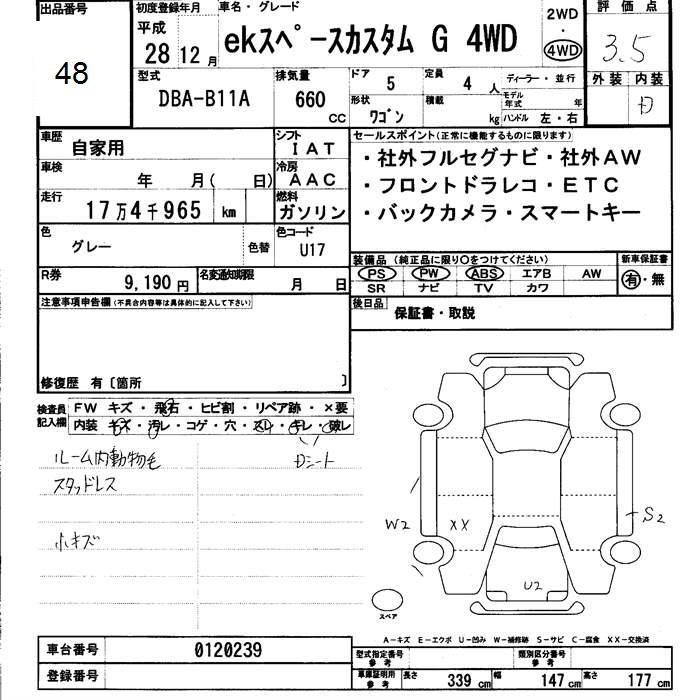 出品番号
48
初度登録年月
平成
28 12 月
車名・グレード
ekスペースカスタム G 4WD
2WD
・
4WD
評価点
3.5
外装 内装
D
型式
DBA-B11A
排気量
660
CC
ドア
5
定員
4 人
ディーラー・並行
モデル年式 年
形状
ワゴン
積載
kg
ハンドル 左・右
車歴
自家用
シフト
IAT
車検
年 月( 日)
冷房
AAC
走行
17万4千965 km
燃料
ガソリン
色
グレー
色替
色コード
U17
R券
9,190 円
名変通知期限
月 日
セールスポイント(正常に機能するものに限ります)
・社外フルセグナビ・社外AW
・フロントドラレコ・ETC
・バックカメラ・スマートキー
装備品 (純正品に限り○をつけてください)
PS PW ABS エアB AW
SR ナビ TV カワ
新車保証書
有・無
後日品
保証書・取説
注意事項申告欄(不具合内容等は具体的に記入して下さい)
修復歴 有〔箇所 〕
検査員記入欄
FW キズ・飛石・ヒビ割・リペア跡・×要
内装 キズ・汚レ・コゲ・穴・スレ・キレ・破レ
ルーム内動物毛
Dシート
スタッドレス
小キズ
W2
XX
S2
U2
スペア
A-キズ E-エクボ U-凹み W-補修跡 S-サビ C-腐食 XX-交換済
車台番号
0120239
登録番号
型式指定番号
参考
類別区分番号
参考
車庫証明用
参考
長さ 339 cm 幅 147 cm 高さ 177 cm